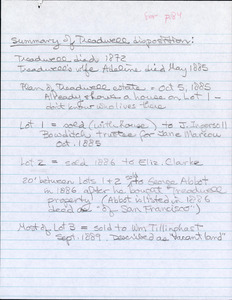 for p84
Summary of Treadwell disposition:
Treadwell died 1872
Treadwell's wife Adeline died May 1885
Plan of Treadwell estate - Oct 5, 1885
Already shows a house on Lot 1 -
don't know who lives there
Lot 1 = sold (with house) to S. Ingersoll
Bowditch trustee for Jane
Oct. 1885
Lot 2 = sold 1886 to Eliz. Clarke
20' between Lots 1+2 sold to George Abbot
in 1886 after he bought "Treadwell
property" (Abbot is listed in 1886
deed as "of San Francisco")
Most of Lot 3 = sold to Wm Tillinghast
Sept. 1889. Described as "vacant land"